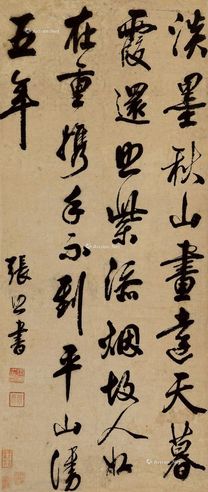 淡墨秋山畫遠天暮
霞還照紫添烟故人好
在重携手不到平山漫
五年
張照書